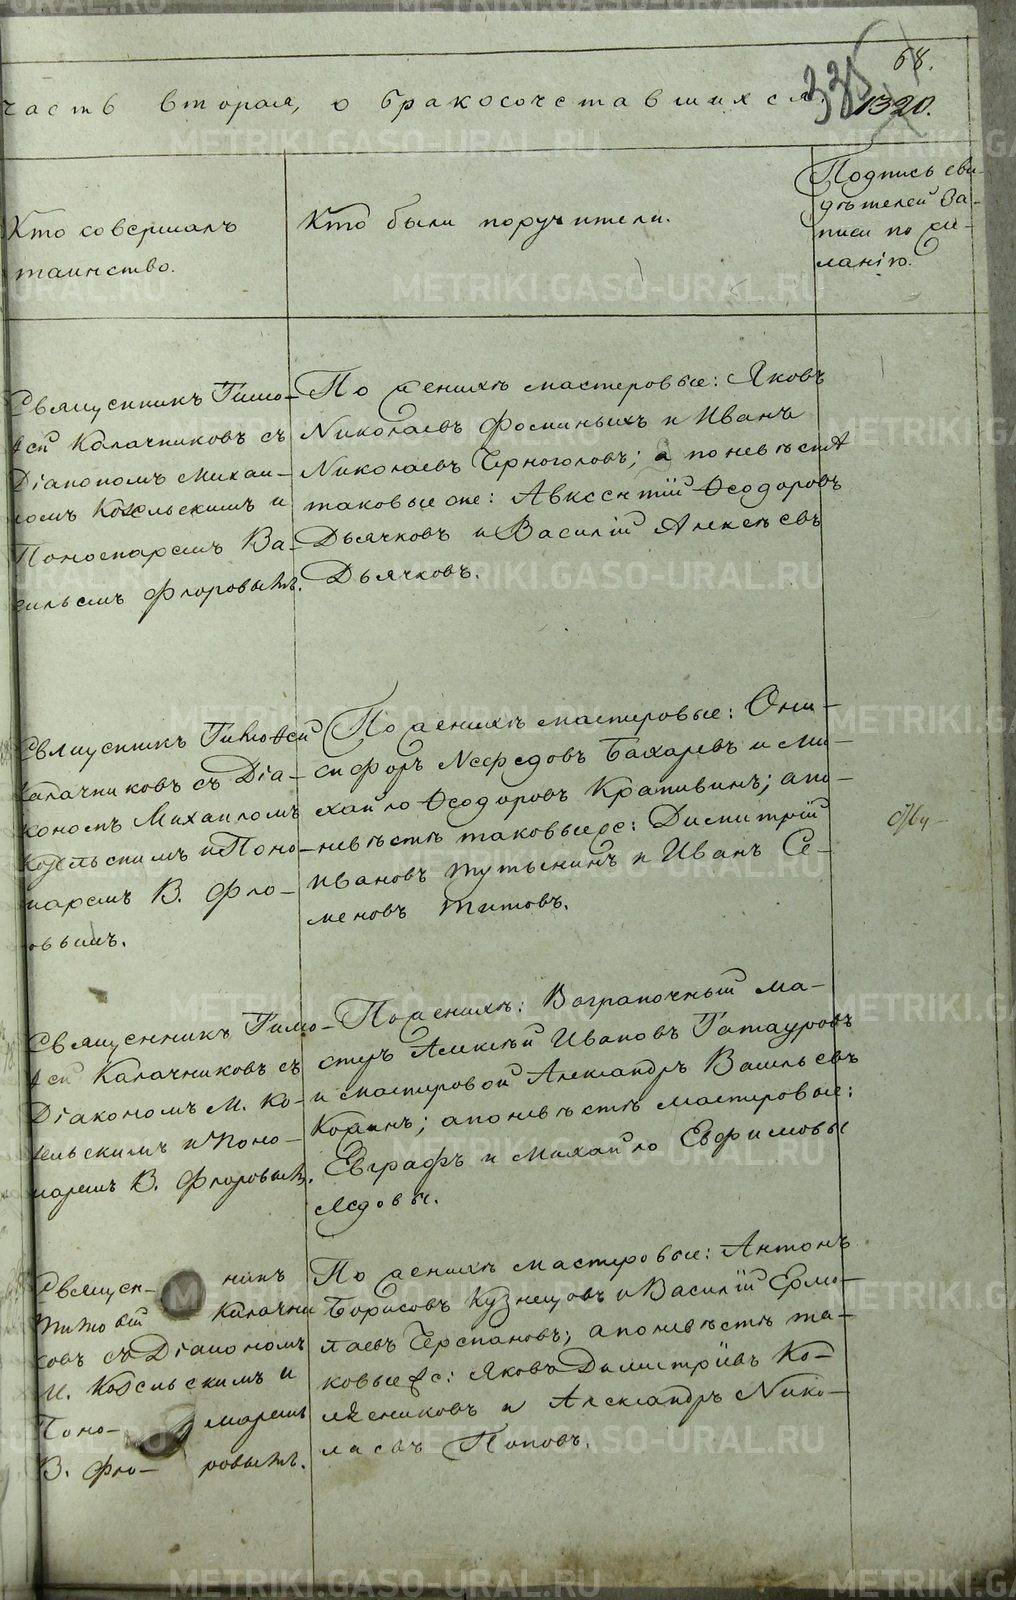 68.
335
1320.
часть вторая, о бракосочетавшихся.
Кто совершалъ
таинство.
Кто были поручители.
Подпись сви-
дѣтелей за-
писи по же-
ланію.
Священникъ Тимо-
ѳей Калачниковъ съ
Діакономъ Михаи-
ломъ Козельскимъ и
Пономаремъ Ва-
сильемъ Флоровымъ.
По женихѣ мастеровые: Яковъ
Николаевъ Фоминыхъ и Иванъ
Николаевъ Черноголовъ; а по невѣстѣ
таковые же: Авксентій Ѳеодоровъ
Дьячковъ и Василій Алексѣевъ
Дьячковъ.
Священникъ Тимоѳей
Калачниковъ съ Діа-
кономъ Михаиломъ
Козельскимъ и Поно-
маремъ В. Фло-
ровымъ.
По женихѣ мастеровые: Они-
сифоръ Меѳедовъ Бахаревъ и Ми-
хайло Ѳеодоровъ Крапивинъ; а по-
невѣстѣ таковые же: Димитрій
Ивановъ Тутынинъ и Иванъ Се-
меновъ Титовъ.
Священникъ Тимо-
ѳей Калачниковъ съ
Діакономъ М. Ко-
зельскимъ и Поно-
маремъ В. Флоровымъ.
По женихѣ: Ваграночный ма-
стеръ Алексѣй Ивановъ Татауровъ
и мастеровой Александръ Васильевъ
Кокинъ; а по невѣстѣ мастеровые:
Евграфъ и Михайло Евфимовы
Лядовы.
Священ- никъ
Тимоѳей Калачни
ковъ съ Діакономъ
М. Козельскимъ и
Поно- маремъ
В. Фло- ровымъ.
По женихѣ мастеровые: Антонъ
Борисовъ Кузнецовъ и Василій Ермо-
лаевъ Черепановъ; а по невѣстѣ та-
ковые же: Яковъ Димитріевъ Ко-
лясниковъ и Александръ Нико-
лаевъ Поповъ.
METRIKI.GASO-URAL.RU